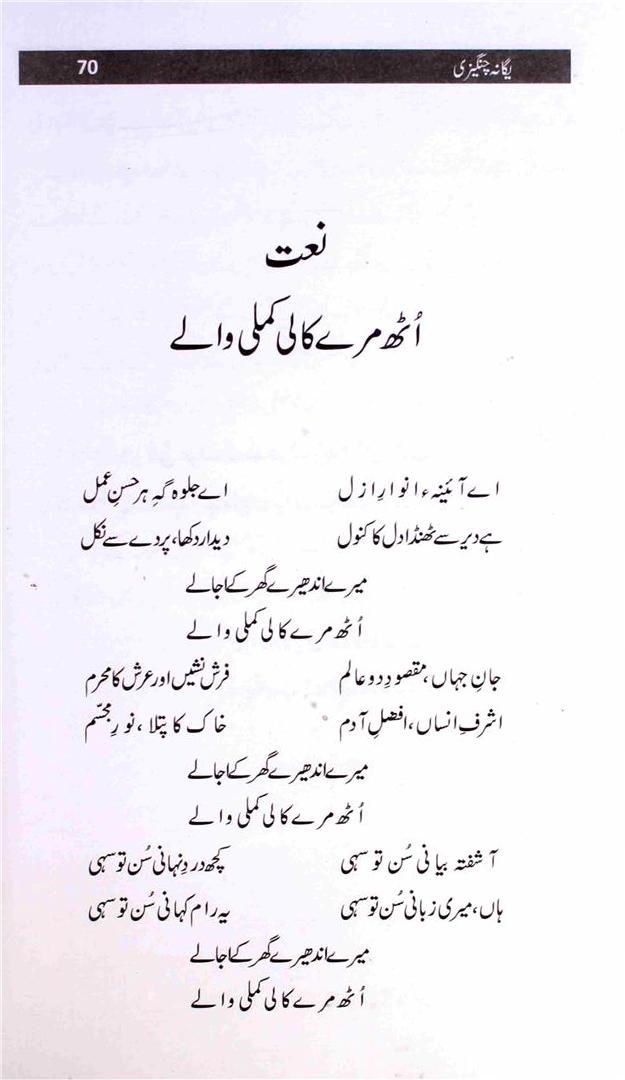 یگانہ چنگیزی 70
نعت
اُٹھ مرے کالی کملی والے
اے آئینہء انوارِ ازل اے جلوہ گہِ ہر حسنِ عمل
ہے دیر سے ٹھنڈا دل کا کنول دیدار دکھا، پردے سے نکل
میرے اندھیرے گھر کے اجالے
اُٹھ مرے کالی کملی والے
جانِ جہاں، مقصودِ دو عالم فرش نشیں اور عرش کا محرم
اشرفِ انساں، افضلِ آدم خاک کا پتلا، نورِ مجسّم
میرے اندھیرے گھر کے اجالے
اُٹھ مرے کالی کملی والے
آشفتہ بیانی سُن تو سہی کچھ دردِ نہانی سُن تو سہی
ہاں، میری زبانی سُن تو سہی یہ رام کہانی سُن تو سہی
میرے اندھیرے گھر کے اجالے
اُٹھ مرے کالی کملی والے